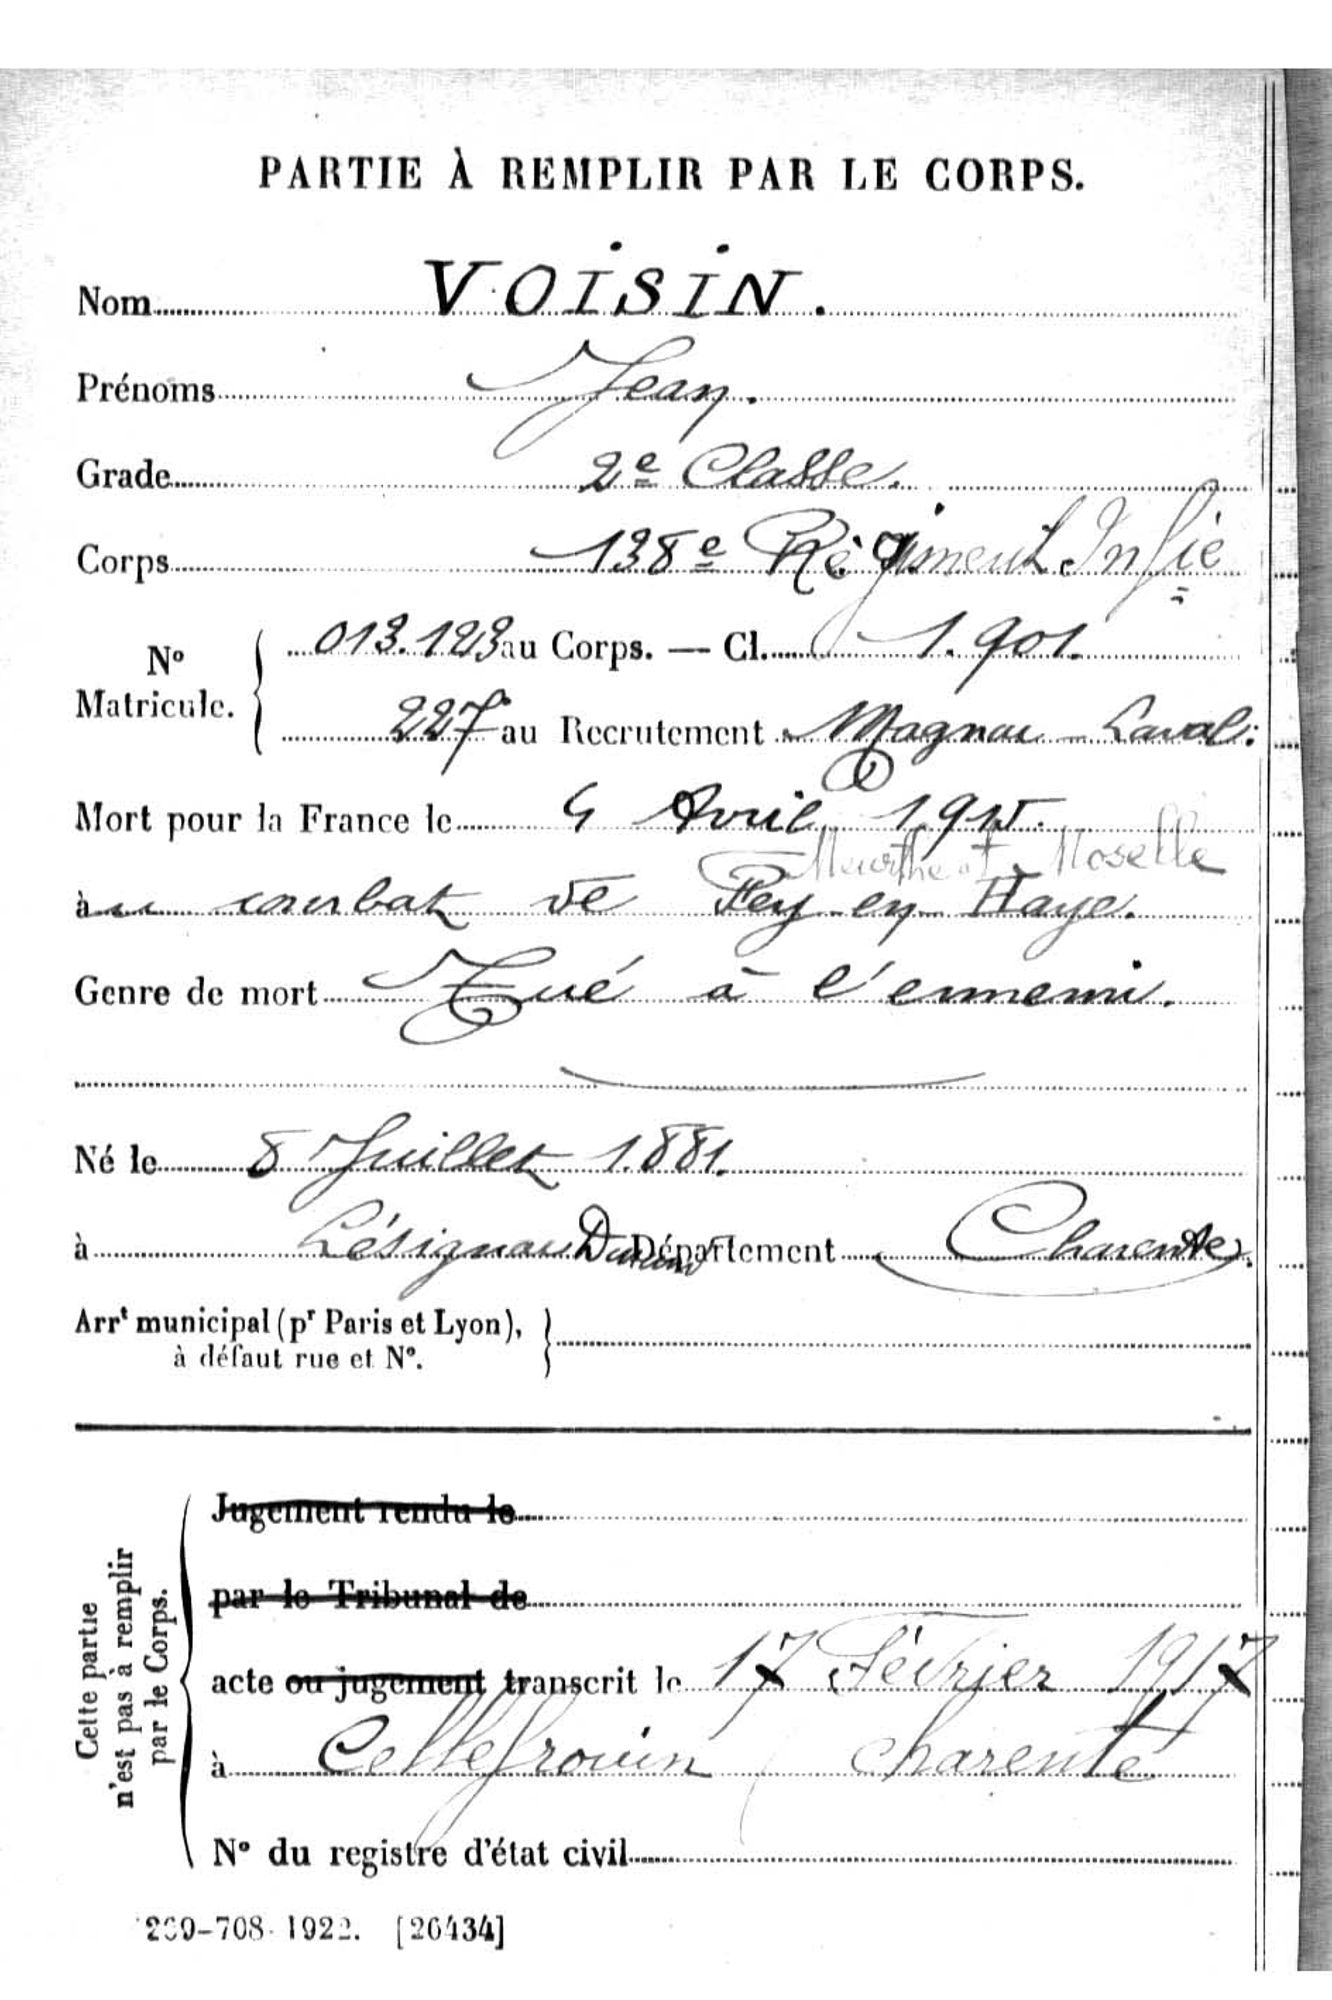 PARTIE À REMPLIR PAR LE CORPS.
Nom VOISIN.
Prénoms Jean.
Grade 2e Classe.
Corps 138e Régiment Infie
No Matricule. 013.123 au Corps. — Cl. 1.901.
227 au Recrutement Magnac-Laval.
Mort pour la France le 4 Avril 1915.
Meurthe et Moselle
au combat de Fey en Haye.
Genre de mort Tué à l'ennemi.
Né le 8 Juillet 1.881.
à Lésignac Durand Département Charente.
Arrt municipal (pr Paris et Lyon),
à défaut rue et N°.
Cette partie
n'est pas à remplir
par le Corps.
Jugement rendu le
par le Tribunal de
acte ou jugement transcrit le 17 Février 1917
à Cellefrouin (Charente
N° du registre d'état civil
-708-1922. [26434]